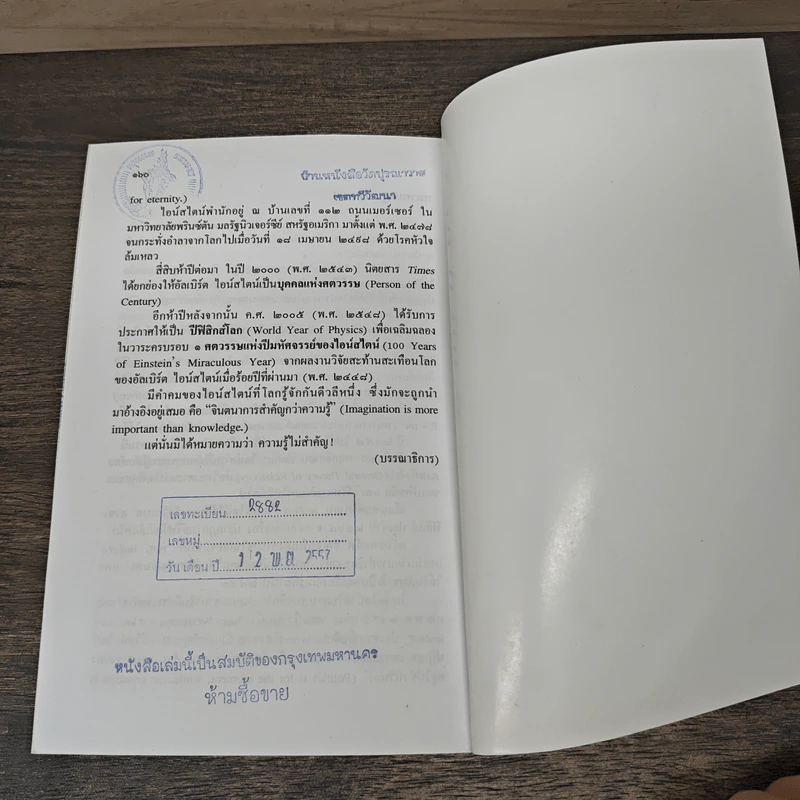 ๑๒๐
บ้านหนังสือวัดปุรณาวาส
เขตทวีวัฒนา
for eternity.)
ไอน์สไตน์พำนักอยู่ ณ บ้านเลขที่ ๑๑๒ ถนนเมอร์เซอร์ ใน
มหาวิทยาลัยพรินซ์ตัน มลรัฐนิวเจอร์ซีย์ สหรัฐอเมริกา มาตั้งแต่ พ.ศ. ๒๔๗๘
จนกระทั่งอำลาจากโลกไปเมื่อวันที่ ๑๘ เมษายน ๒๔๙๘ ด้วยโรคหัวใจ
ล้มเหลว
สี่สิบห้าปีต่อมา ในปี ๒๐๐๐ (พ.ศ. ๒๕๔๓) นิตยสาร Times
ได้ยกย่องให้อัลเบิร์ต ไอน์สไตน์เป็นบุคคลแห่งศตวรรษ (Person of the
Century)
อีกห้าปีหลังจากนั้น ค.ศ. ๒๐๐๕ (พ.ศ. ๒๕๔๘) ได้รับการ
ประกาศให้เป็น ปีฟิสิกส์โลก (World Year of Physics) เพื่อเฉลิมฉลอง
ในวาระครบรอบ ๑ ศตวรรษแห่งปีมหัศจรรย์ของไอน์สไตน์ (100 Years
of Einstein's Miraculous Year) จากผลงานวิจัยสะท้านสะเทือนโลก
ของอัลเบิร์ต ไอน์สไตน์เมื่อร้อยปีที่ผ่านมา (พ.ศ. ๒๔๔๘)
มีคำคมของไอน์สไตน์ที่โลกรู้จักกันดีวลีหนึ่ง ซึ่งมักจะถูกนำ
มาอ้างอิงอยู่เสมอ คือ "จินตนาการสำคัญกว่าความรู้" (Imagination is more
important than knowledge.)
แต่นั่นมิได้หมายความว่า ความรู้ไม่สำคัญ!
(บรรณาธิการ)
เลขทะเบียน 2882
เลขหมู่
วัน เดือน ปี 12 พ.ย. 2557
หนังสือเล่มนี้เป็นสมบัติของกรุงเทพมหานคร
ห้ามซื้อขาย